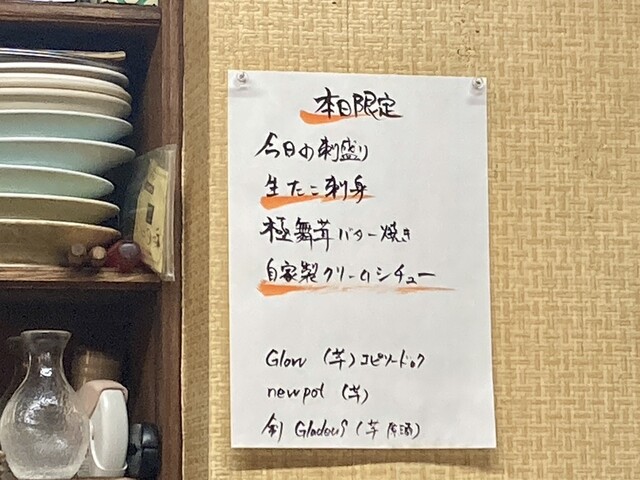 本日限定
今日の刺盛り
生たこ刺身
極舞茸バター焼き
自家製クリームシチュー
Glow (芋) エピソード
newpot (芋)
剣 Gladous (芋 原酒)